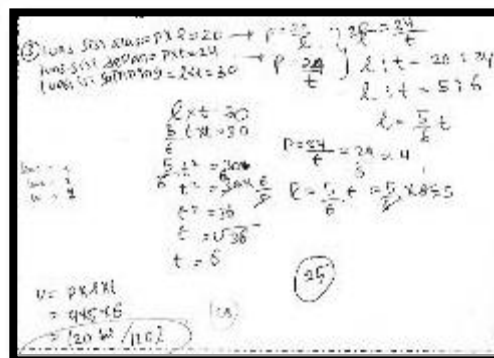 ③ Luas sisi alas = p x l = 20 → p = 20/l } 20/l = 24/t
Luas sisi depan = p x t = 24 → p = 24/t } l : t = 20 : 24
Luas sisi samping = l x t = 30
l : t = 5 : 6
l = 5/6 t
l x t = 30
5/6 t x t = 30
5/6 t² = 30
t² = 30 x 6/5
t² = 36
t = √36
t = 6
p = 24/t = 24/6 = 4
l = 5/6 . t = 5/6 x 6 = 5
25
V = p x l x t
= 4 x 5 x 6
= 120